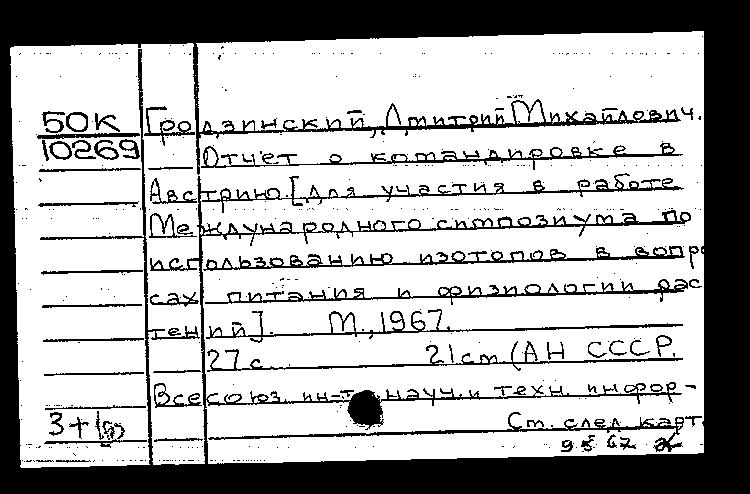 50К Гродзинский, Дмитрий Михайлович.
10269 Отчет о командировке в
Австрию [для участия в работе
Международного симпозиума по
использованию изотопов в вопро
сах питания и физиологии рас
тений]. М., 1967.
27 с. 21 см. (АН СССР.
Всесоюз. ин-т науч. и техн. инфор-
3+1 Ст. след. карт.
95 67